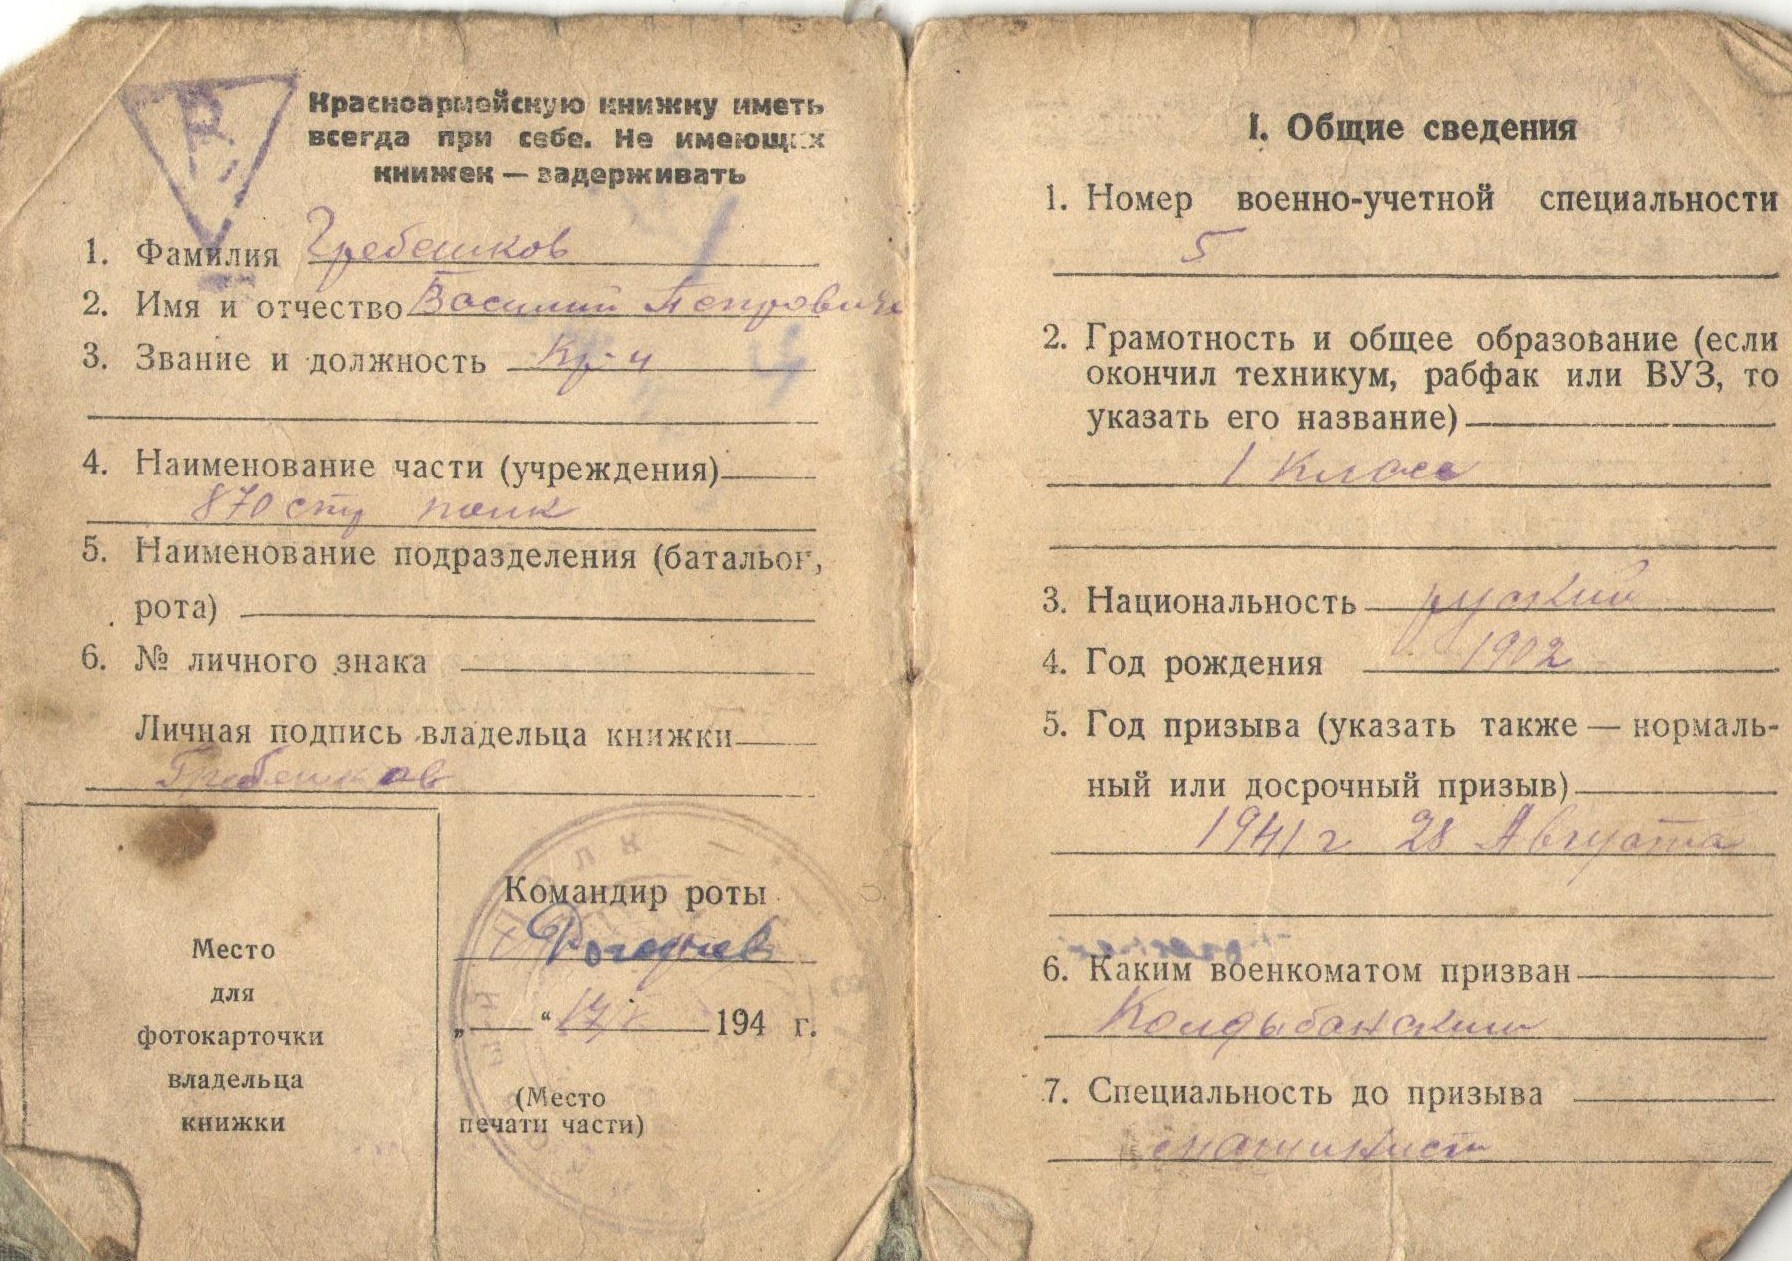 Красноармейскую книжку иметь
всегда при себе. Не имеющих
книжек — задерживать
1. Фамилия Гребешков
2. Имя и отчество Василий Петрович
3. Звание и должность Кр-ц
4. Наименование части (учреждения)
870 стр полк
5. Наименование подразделения (батальон,
рота)
6. № личного знака
Личная подпись владельца книжки
Гребешков
Место
для
фотокарточки
владельца
книжки
Командир роты
„ “ 194 г.
(Место
печати части)
I. Общие сведения
1. Номер военно-учетной специальности
5
2. Грамотность и общее образование (если
окончил техникум, рабфак или ВУЗ, то
указать его название)
1 класс
3. Национальность руский
4. Год рождения 1902
5. Год призыва (указать также — нормаль-
ный или досрочный призыв)
1941 г 28 Августа
6. Каким военкоматом призван
Колдыбанским
7. Специальность до призыва
машинист